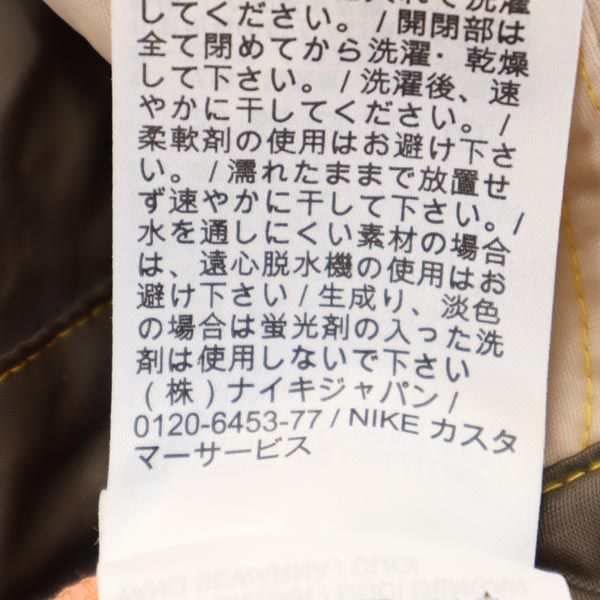 してください。/開閉部は
全て閉めてから洗濯・乾燥
して下さい。/洗濯後、速
やかに干してください。/
柔軟剤の使用はお避け下さ
い。/濡れたままで放置せ
ず速やかに干して下さい。/
水を通しにくい素材の場合
は、遠心脱水機の使用はお
避け下さい/生成り、淡色
の場合は蛍光剤の入った洗
剤は使用しないで下さい
(株)ナイキジャパン/
0120-6453-77 / NIKE カスタ
マーサービス